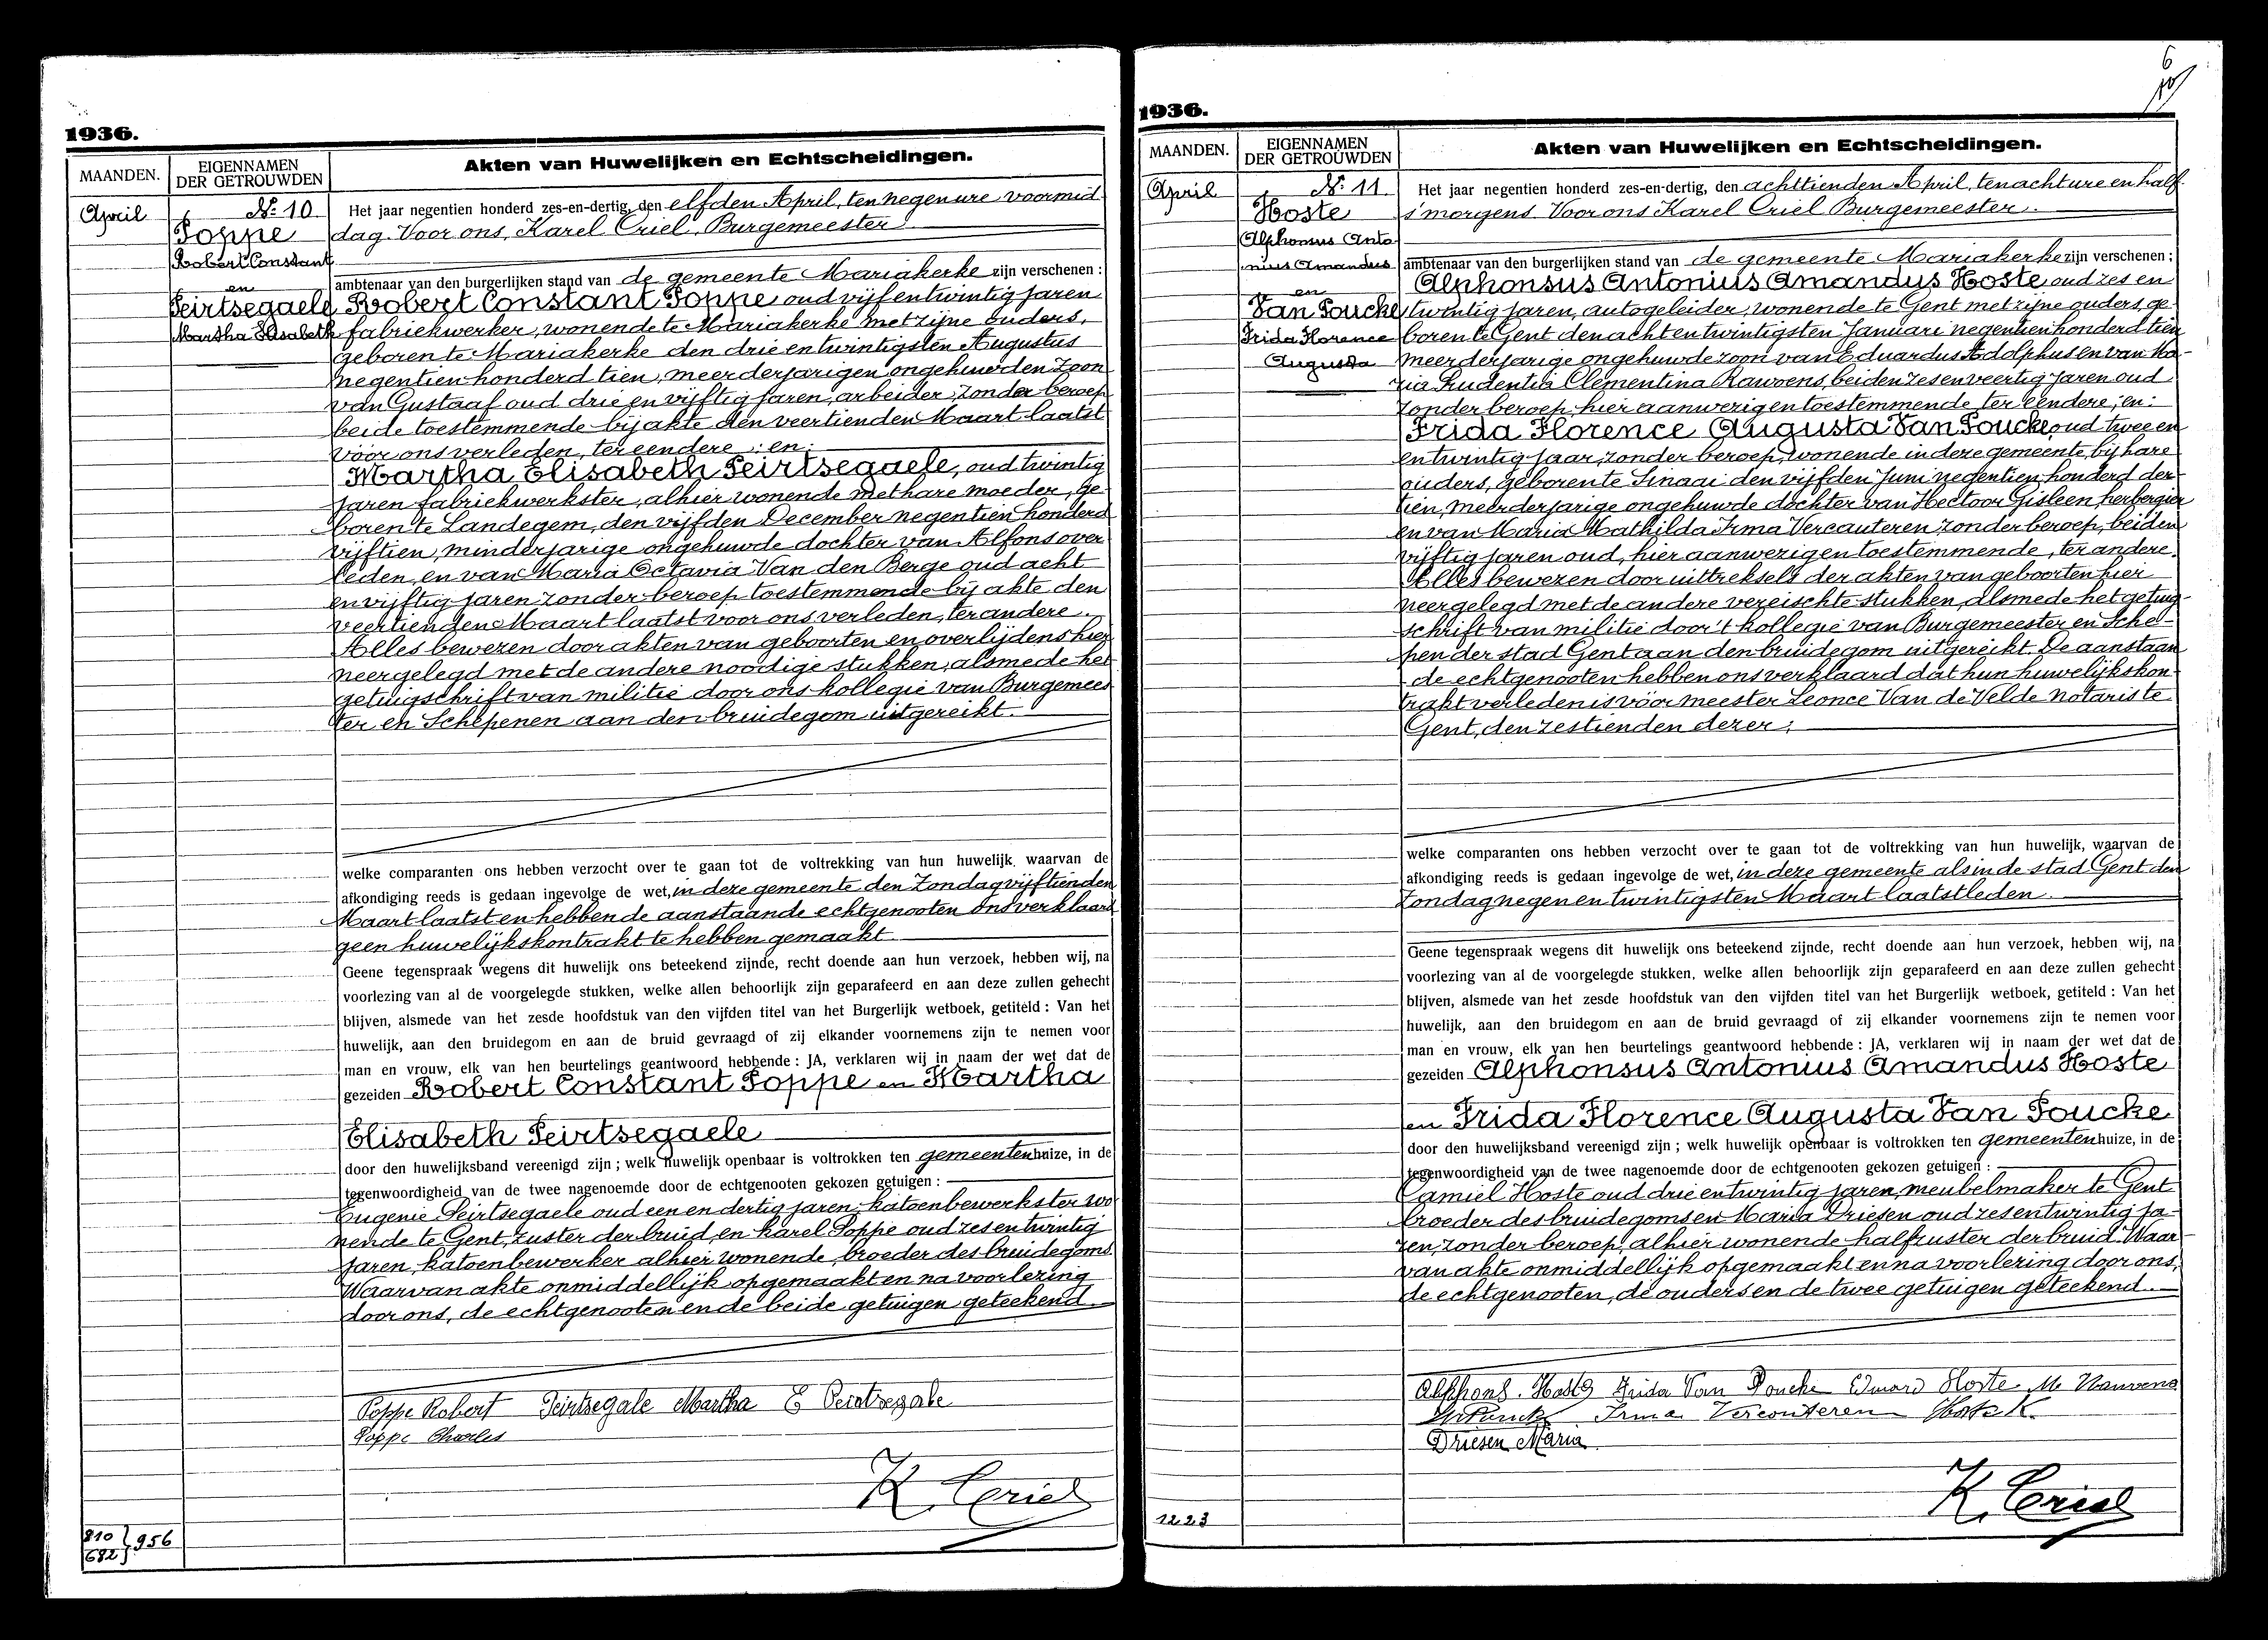 1936.
MAANDEN.
EIGENNAMEN
DER GETROUWDEN
Akten van Huwelijken en Echtscheidingen.
April
№ 10
Poppe
Robert Constant
en
Peirtsegaele
Martha Elisabeth
Het jaar negentien honderd zes-en-dertig, den elfden April, ten negen ure voormid
dag. Voor ons, Karel Criel, Burgemeester
ambtenaar van den burgerlijken stand van de gemeente Mariakerke zijn verschenen :
Robert Constant Poppe oud vijf en twintig jaren
fabriekwerker, wonende te Mariakerke met zijne ouders,
geboren te Mariakerke den drie en twintigsten Augustus
negentien honderd tien, meerderjarigen ongehuwden zoon
van Gustaaf oud drie en vijftig jaren, arbeider, zonder beroep
beide toestemmende bij akte den veertienden Maart laatst
vóór ons verleden, ter eendere ; en :
Martha Elisabeth Peirtsegaele, oud twintig
jaren fabriekwerkster, alhier wonende met hare moeder, ge-
boren te Landegem, den vijfden December negentien honderd
vijftien, minderjarige ongehuwde dochter van Alfons over
leden, en van Maria Octavia Van den Berge oud acht
en vijftig jaren zonder beroep toestemmende bij akte den
veertienden Maart laatst voor ons verleden, ter andere.
Alles bewezen door akten van geboorten en overlijdens hier
neergelegd met de andere noodige stukken, alsmede het
getuigschrift van militie door ons kollegie van Burgemees
ter en Schepenen aan den bruidegom uitgereikt.
welke comparanten ons hebben verzocht over te gaan tot de voltrekking van hun huwelijk, waarvan de
afkondiging reeds is gedaan ingevolge de wet, in deze gemeente den Zondag vijftienden
Maart laatst en hebben de aanstaande echtgenooten ons verklaard
geen huwelijkskontrakt te hebben gemaakt
Geene tegenspraak wegens dit huwelijk ons beteekend zijnde, recht doende aan hun verzoek, hebben wij, na
voorlezing van al de voorgelegde stukken, welke allen behoorlijk zijn geparafeerd en aan deze zullen gehecht
blijven, alsmede van het zesde hoofdstuk van den vijfden titel van het Burgerlijk wetboek, getiteld : Van het
huwelijk, aan den bruidegom en aan de bruid gevraagd of zij elkander voornemens zijn te nemen voor
man en vrouw, elk van hen beurtelings geantwoord hebbende : JA, verklaren wij in naam der wet dat de
gezeiden Robert Constant Poppe en Martha
Elisabeth Peirtsegaele
door den huwelijksband vereenigd zijn ; welk huwelijk openbaar is voltrokken ten gemeentenhuize, in de
tegenwoordigheid van de twee nagenoemde door de echtgenooten gekozen getuigen :
Eugenie Peirtsegaele oud een en dertig jaren, katoenbewerkster wo
nende te Gent, zuster der bruid, en Karel Poppe oud zes en twintig
jaren, katoenbewerker alhier wonende, broeder des bruidegoms
Waarvan akte onmiddellijk opgemaakt en na voorlezing
door ons, de echtgenooten en de beide getuigen geteekend.
Poppe Robert Peirtsegale Martha E Peirtsegale
Poppe Charles
K. Criel
810
682 } 956
6
1936.
MAANDEN.
EIGENNAMEN
DER GETROUWDEN
Akten van Huwelijken en Echtscheidingen.
April
№ 11
Hoste
Alphonsus Anto
nius Amandus
en
Van Poucke
Frida Florence
Augusta
Het jaar negentien honderd zes-en-dertig, den achttienden April, ten acht ure en half
s'morgens Voor ons Karel Criel Burgemeester.
ambtenaar van den burgerlijken stand van de gemeente Mariakerke zijn verschenen ;
Alphonsus Antonius Amandus Hoste, oud zes en
twintig jaren, autogeleider, wonende te Gent met zijne ouders, ge-
boren te Gent den acht en twintigsten Januari negentien honderd tien
meerderjarige ongehuwde zoon van Eduardus Adolphus en van Ma-
ria Prudentia Clementina Rawoens, beiden zes en veertig jaren oud
zonder beroep, hier aanwezig en toestemmende ter eendere ; en :
Frida Florence Augusta Van Poucke, oud twee en
en twintig jaar, zonder beroep, wonende in deze gemeente, bij hare
ouders, geboren te Sinaai den vijfden Juni negentien honderd der-
tien, meerderjarige ongehuwde dochter van Hectoor Gisleen, herbergier
en van Maria Mathilda Irma Vercauteren zonder beroep, beiden
vijftig jaren oud, hier aanwezig en toestemmende, ter andere.
Alles bewezen door uittreksels der akten van geboorten hier
neergelegd met de andere vereischte stukken, alsmede het getuig-
schrift van militie door 't kollegie van Burgemeester en Sche-
pen der stad Gent aan den bruidegom uitgereikt. De aanstaan
de echtgenooten hebben ons verklaard dat hun huwelijkskon-
trakt verleden is vóór meester Leonce Van de Velde notaris te
Gent, den zestienden dezer ;
welke comparanten ons hebben verzocht over te gaan tot de voltrekking van hun huwelijk, waarvan de
afkondiging reeds is gedaan ingevolge de wet, in deze gemeente als in de stad Gent den
Zondag negen en twintigsten Maart laatstleden.
Geene tegenspraak wegens dit huwelijk ons beteekend zijnde, recht doende aan hun verzoek, hebben wij, na
voorlezing van al de voorgelegde stukken, welke allen behoorlijk zijn geparafeerd en aan deze zullen gehecht
blijven, alsmede van het zesde hoofdstuk van den vijfden titel van het Burgerlijk wetboek, getiteld : Van het
huwelijk, aan den bruidegom en aan de bruid gevraagd of zij elkander voornemens zijn te nemen voor
man en vrouw, elk van hen beurtelings geantwoord hebbende : JA, verklaren wij in naam der wet dat de
gezeiden Alphonsus Antonius Amandus Hoste
en Frida Florence Augusta Van Poucke
door den huwelijksband vereenigd zijn ; welk huwelijk openbaar is voltrokken ten gemeentenhuize, in de
tegenwoordigheid van de twee nagenoemde door de echtgenooten gekozen getuigen :
Camiel Hoste oud drie en twintig jaren, meubelmaker te Gent
broeder des bruidegoms en Maria Driesen oud zes en twintig ja-
ren, zonder beroep, alhier wonende halfzuster der bruid. Waar-
van akte onmiddellijk opgemaakt en na voorlezing door ons,
de echtgenooten, de ouders en de twee getuigen geteekend.
Alphons. Hoste Frida Van Poucke Edward Hoste M Rauwens
Irma Vercouteren Hoste K.
Driesen Maria
K. Criel
1223